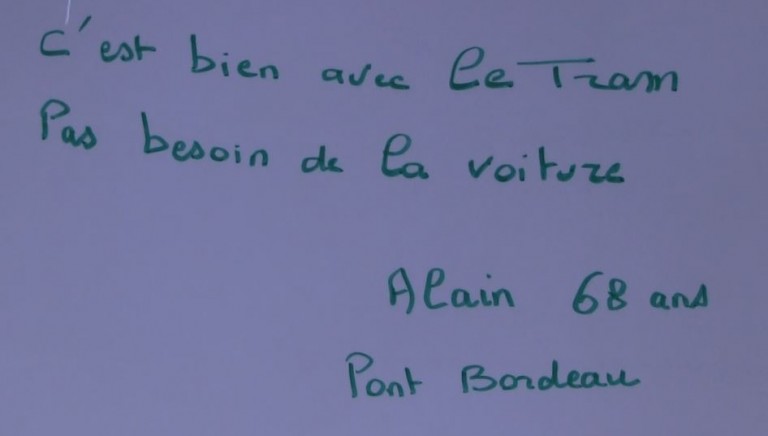 c'est bien avec le Tram
Pas besoin de la voiture
Alain 68 ans
Pont Bordeau